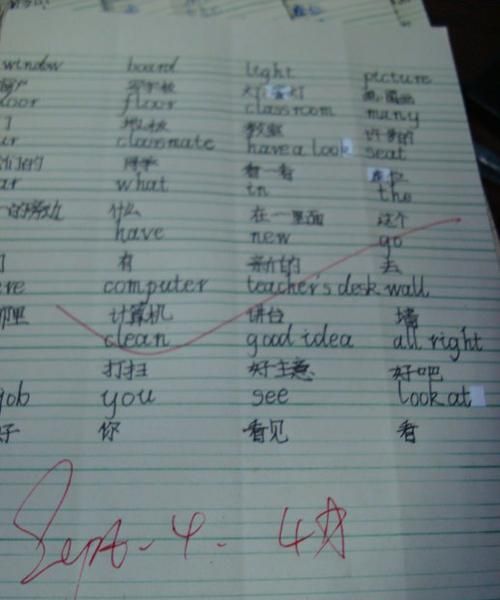 window board light picture
写字板 画，图画
floor classroom many
地板 教室 许多的
classmate have a look seat
们的 同学 看一看 座位
what in the
什么 在…里面 这个
have new go
有 新的 去
computer teacher's desk wall
那里 计算机 讲台 墙
clean good idea all right
打扫 好主意 好吧
job you see look at
你 看见 看
Sept. 4.